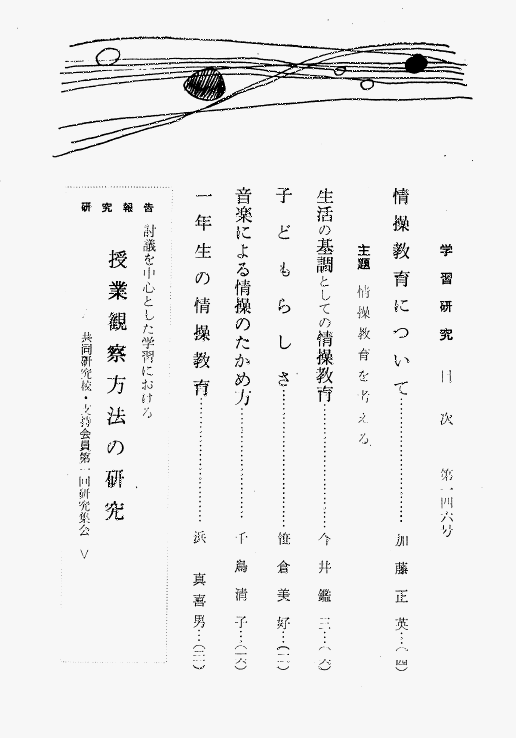 学習研究 目次 第一四六号
情操教育について……加藤正英…(四)
主題 情操教育を考える
生活の基調としての情操教育……今井鑑三…(六)
子どもらしさ……笹倉美好…(一一)
音楽による情操のたかめ方……千鳥清子…(一六)
一年生の情操教育……浜真喜男…(二一)
研究報告
討議を中心とした学習における
授業観察方法の研究
共同研究校・支持会員第一回研究集会